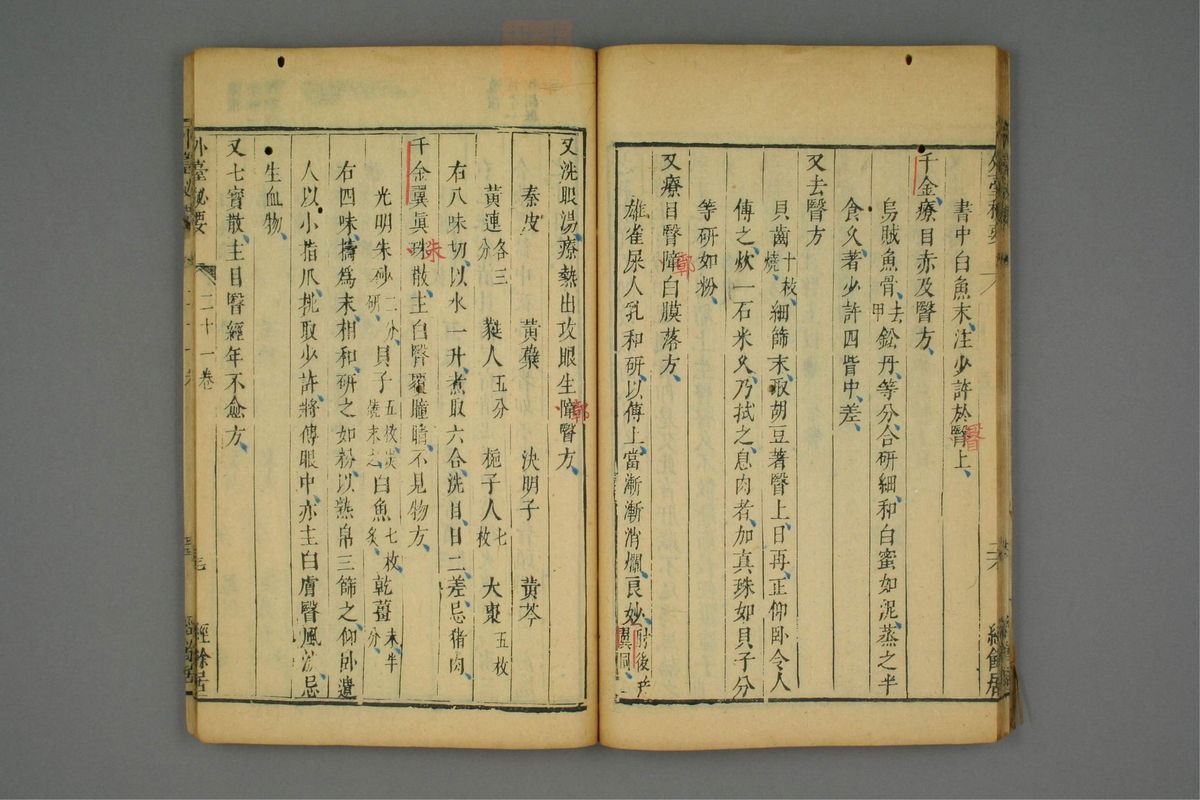 書中白魚末注少許於瞖上
千金療目赤及瞖方
烏賊魚骨去甲鈆丹等分合研細和白蜜如泥蒸之半
食久著少許四眥中差
又去瞖方
貝齒十枚燒細篩末取胡豆著瞖上日再正仰臥令人
傅之炊一石米久乃拭之息肉者加真珠如貝子分
等研如粉
又療目瞖障白膜落方
鄣
雄雀屎人乳和研以傅上當漸漸消爛良妙肘後千
翼同
又洗眼湯療熱出攻眼生障瞖方
鄣
秦皮 黃蘗 決明子 黃芩
黃連各三分 蕤人五分 梔子人七枚 大棗五枚
右八味切以水一升煮取六合洗目日二差忌猪肉
千金翼真珠散主白瞖覆瞳睛不見物方
朱
光明朱砂二分研貝子五枚炭燒末之白魚七枚炙乾薑末半分
右四味擣爲末相和研之如粉以熟帛三篩之仰臥遣
人以小指爪挑取少許將傅眼中亦主白膚瞖風淚忌
生血物
又七寶散主目瞖經年不愈方
外臺秘要 二十一卷 經餘居